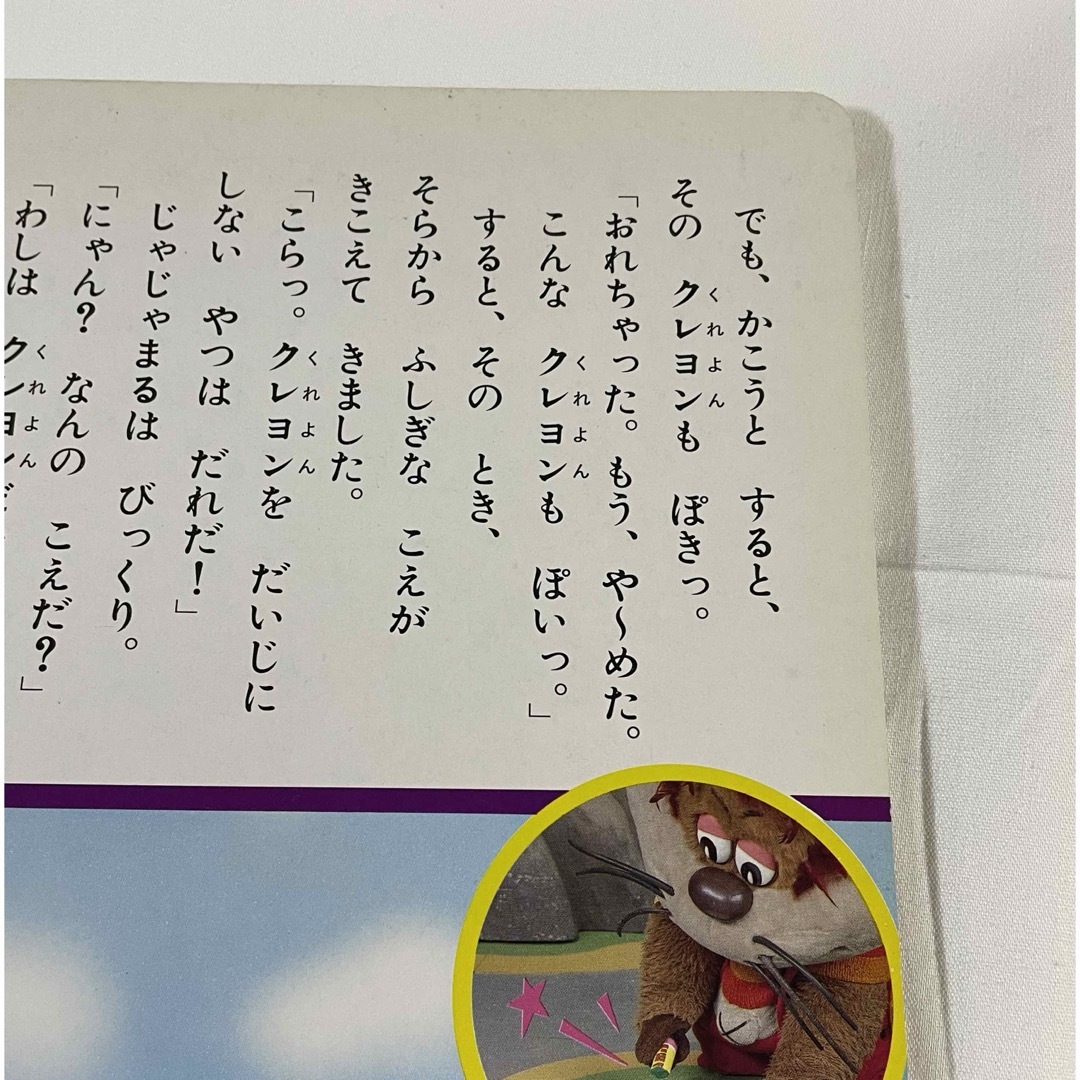 でも、かこうと すると、
その クレヨンも ぽきっ。
くれよん
「おれちゃった。もう、や〜めた。
こんな クレヨンも ぽいっ。」
くれよん
すると、その とき、
そらから ふしぎな こえが
きこえて きました。
「こらっ。クレヨンを だいじに
くれよん
しない やつは だれだ!」
じゃじゃまるは びっくり。
「にゃん? なんの こえだ?」
「わしは クレヨン
くれよん